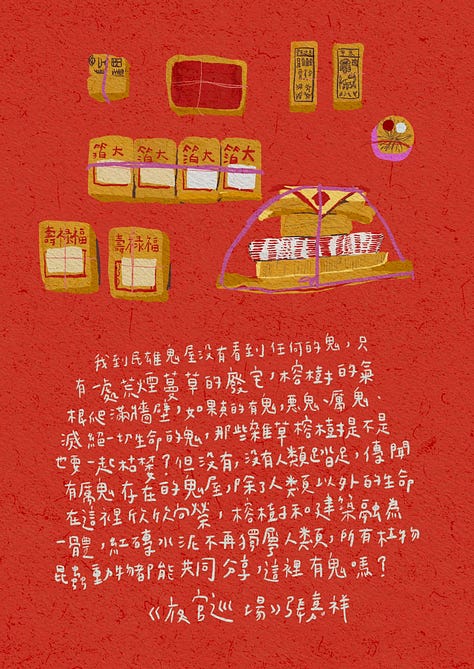 箔大 箔大 箔大 箔大
壽禄福 壽禄福
我到民雄鬼屋没有看到任何的鬼，只
有一處荒煙蔓草的廢宅，榕樹的氣
根爬滿牆壁，如果真的有鬼，惡鬼、厲鬼、
滅絕一切生命的鬼，那些雜草榕樹是不是
也要一起枯萎？但没有，没有人類踏足，傳聞
有厲鬼存在的鬼屋，除了人類以外的生命
在這裡欣欣向榮，榕樹和建築融為
一體，紅磚水泥不再獨屬人類，所有植物
昆蟲動物都能共同分享，這裡有鬼嗎？
《夜官巡場》張嘉祥